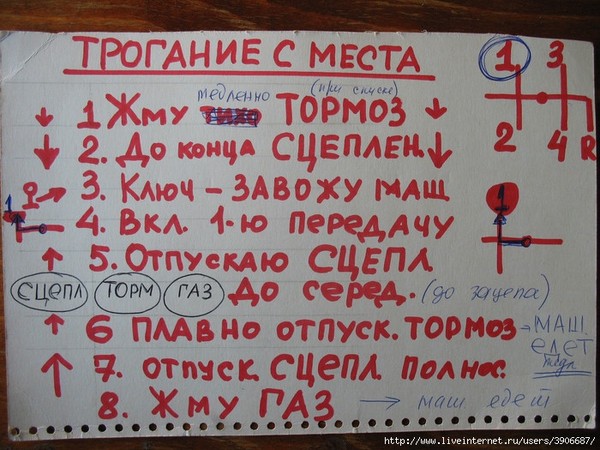 ТРОГАНИЕ С МЕСТА
1 3
медленно (при спуске)
1 Жму ТОРМОЗ
2 4 R
2. До конца СЦЕПЛЕН.
3. Ключ – ЗАВОЖУ МАШ
1
4. Вкл. 1-ю передачу
1
5. Отпускаю СЦЕПЛ
СЦЕПЛ ТОРМ ГАЗ До серед. (до зацепа)
6 плавно отпуск. ТОРМОЗ → МАШ. ЕДЕТ
7. отпуск СЦЕПЛ полнос.
8. Жму ГАЗ → маш едет
http://www.liveinternet.ru/users/3906687/